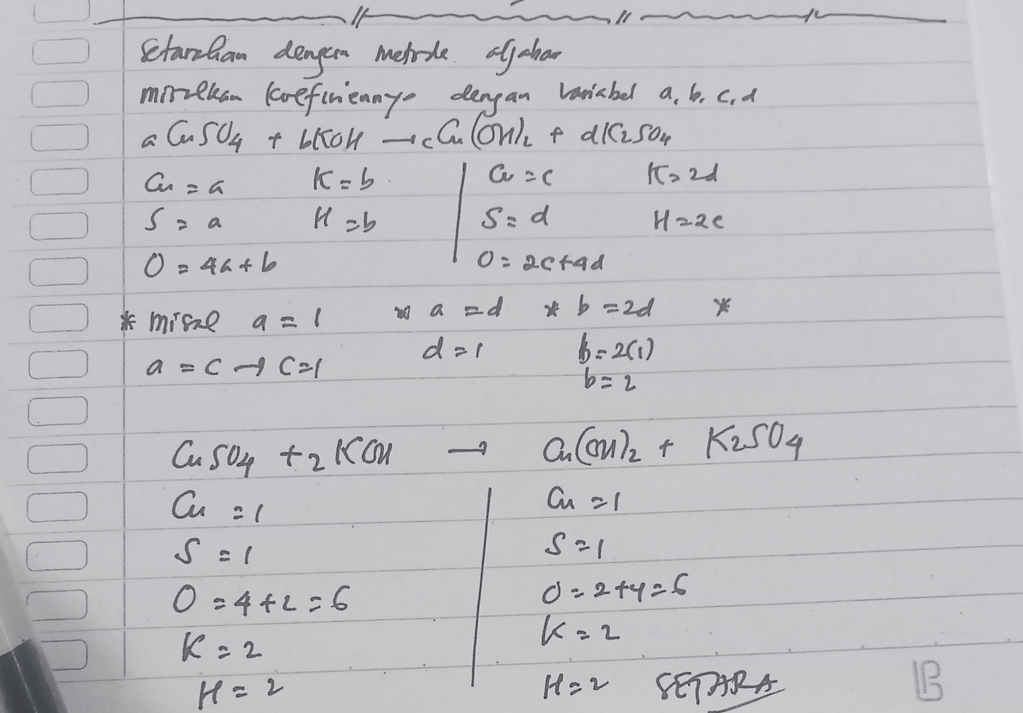 Setarakan dengan metode aljabar
misalkan koefisiennya dengan variabel a, b, c, d
a CuSO4 + bKOH → cCu(OH)2 + dK2SO4
Cu = a K = b Cu = c K = 2d
S = a H = b S = d H = 2c
O = 4a + b O = 2c + 4d
* misal a = 1 * a = d * b = 2d *
a = c → c = 1 d = 1 b = 2(1)
b = 2
CuSO4 + 2 KOH → Cu(OH)2 + K2SO4
Cu = 1 Cu = 1
S = 1 S = 1
O = 4 + 2 = 6 O = 2 + 4 = 6
K = 2 K = 2
H = 2 H = 2 SETARA
B